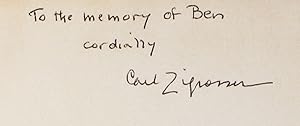 To the memory of Ben
cordially
Carl Zigrosser